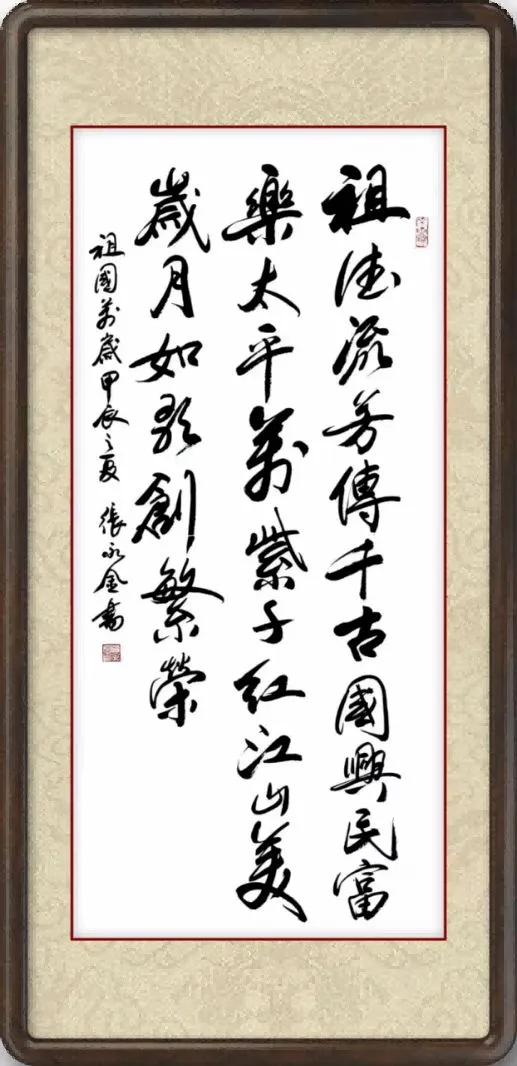 祖德流芳傳千古國興民富
樂太平萬紫千紅江山美
歲月如歌創繁榮
祖國萬歲甲辰之夏 張永金書